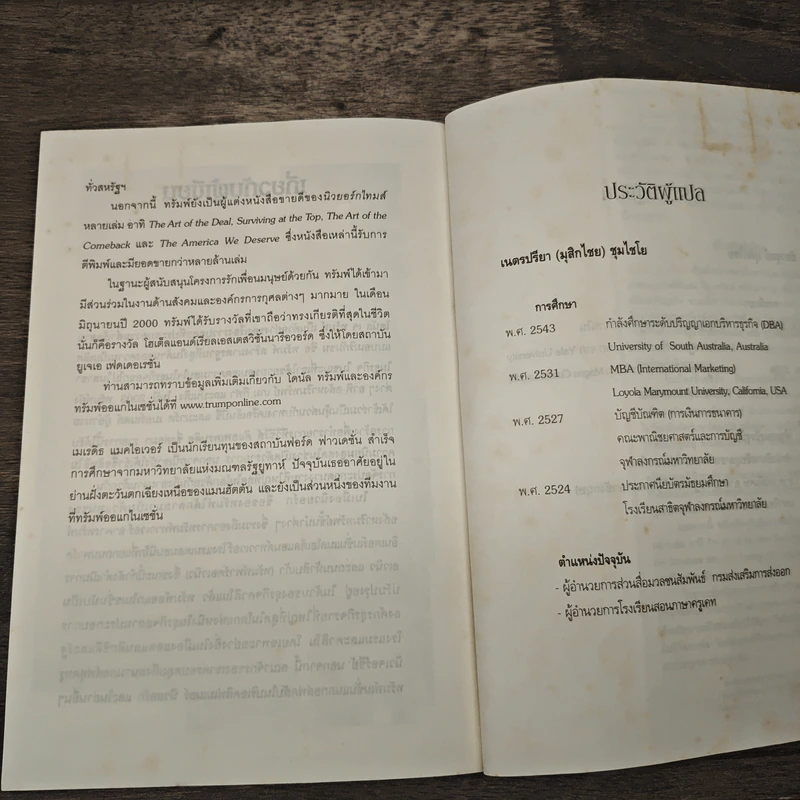 ทั่วสหรัฐฯ
นอกจากนี้ ทรัมพ์ยังเป็นผู้แต่งหนังสือขายดีของนิวยอร์กไทมส์
หลายเล่ม อาทิ The Art of the Deal, Surviving at the Top, The Art of the
Comeback และ The America We Deserve ซึ่งหนังสือเหล่านี้รับการ
ตีพิมพ์และมียอดขายกว่าหลายล้านเล่ม
ในฐานะผู้สนับสนุนโครงการรักเพื่อนมนุษย์ด้วยกัน ทรัมพ์ได้เข้ามา
มีส่วนร่วมในงานด้านสังคมและองค์กรการกุศลต่างๆ มากมาย ในเดือน
มิถุนายนปี 2000 ทรัมพ์ได้รับรางวัลที่เขาถือว่าทรงเกียรติที่สุดในชีวิต
นั่นก็คือรางวัล โฮเต็ลแอนด์เรียลเอสเตสวิชั่นนารีอวอร์ด ซึ่งให้โดยสถาบัน
ยูเจเอ เฟดเดอเรชั่น
ท่านสามารถทราบข้อมูลเพิ่มเติมเกี่ยวกับ โดนัล ทรัมพ์และองค์กร
ทรัมพ์ออแกไนเซชั่นได้ที่ www.trumponline.com
เมเรดิธ แมคไอเวอร์ เป็นนักเรียนทุนของสถาบันฟอร์ด ฟาวเดชั่น สำเร็จ
การศึกษาจากมหาวิทยาลัยแห่งมณฑลรัฐยูทาห์ ปัจจุบันเธออาศัยอยู่ใน
ย่านฝั่งตะวันตกเฉียงเหนือของแมนฮัตตัน และยังเป็นส่วนหนึ่งของทีมงาน
ที่ทรัมพ์ออแกไนเซชั่น
ประวัติผู้แปล
เนตรปรียา (มุสิกไชย) ชุมไชโย
การศึกษา
พ.ศ. 2543 กำลังศึกษาระดับปริญญาเอกบริหารธุรกิจ (DBA)
University of South Australia, Australia
พ.ศ. 2531 MBA (International Marketing)
Loyola Marymount University, California, USA
พ.ศ. 2527 บัญชีบัณฑิต (การเงินการธนาคาร)
คณะพาณิชยศาสตร์และการบัญชี
จุฬาลงกรณ์มหาวิทยาลัย
พ.ศ. 2524 ประกาศนียบัตรมัธยมศึกษา
โรงเรียนสาธิตจุฬาลงกรณ์มหาวิทยาลัย
ตำแหน่งปัจจุบัน
- ผู้อำนวยการส่วนสื่อมวลชนสัมพันธ์ กรมส่งเสริมการส่งออก
- ผู้อำนวยการโรงเรียนสอนภาษาครูเคท